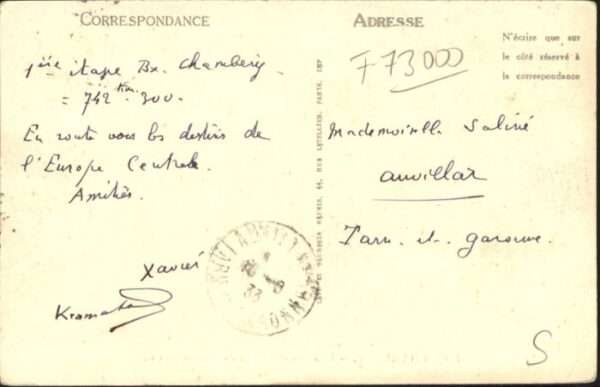 CORRESPONDANCE
1ère étape Bx. Chambéry
= 742 km. 300.
En route vers les destins de
l'Europe Centrale.
Amitiés.
Xavier
ADRESSE
N'écrire que sur
le côté réservé à
la correspondance
F73000
Mademoiselle Salivé
auvillar
Tarn et garonne.
S